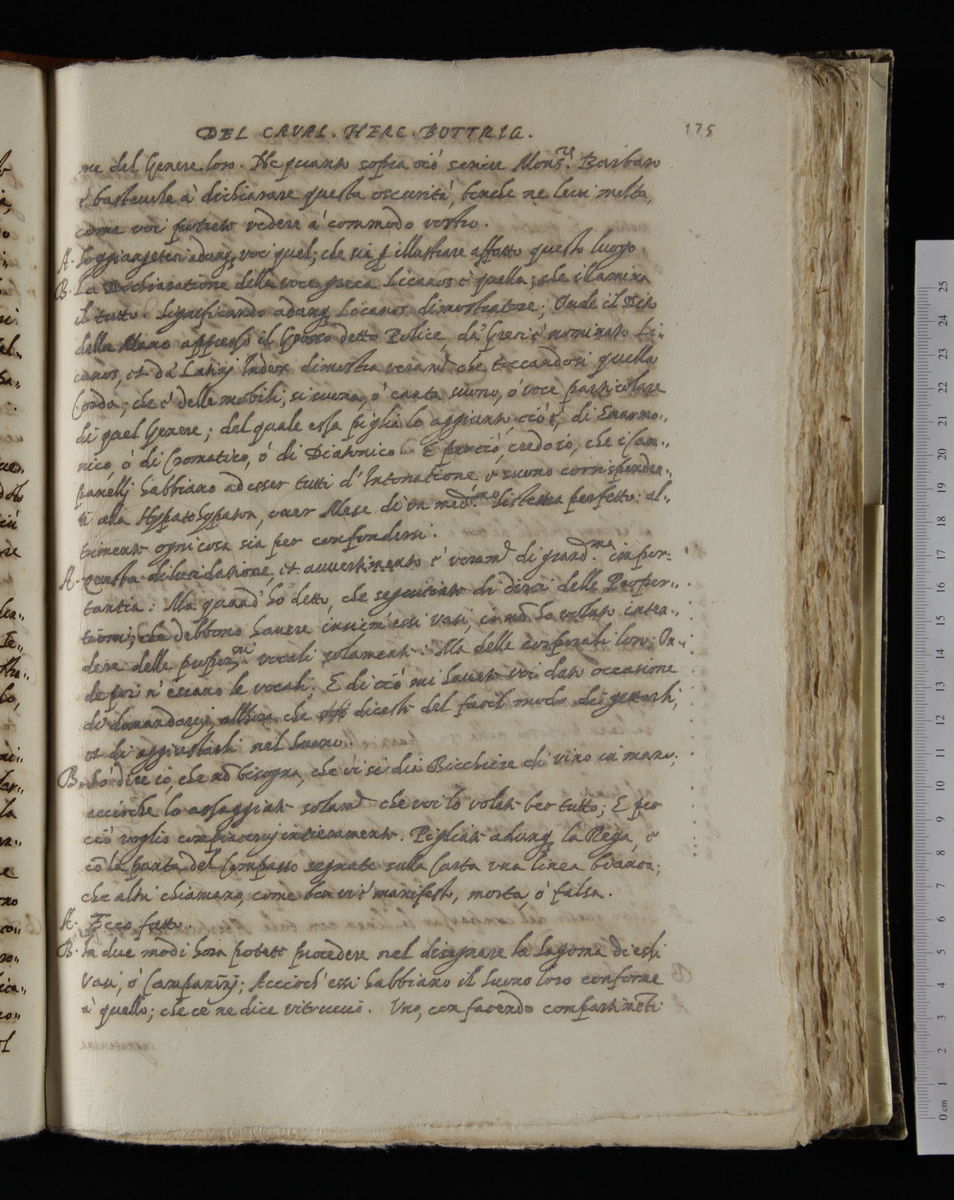 DEL CAVAL. HERC. BOTTRIG. 175
me del Genere loro. Ne quanto sopra ciò scrive Mons.re Barbaro
è bastevole à dichiarare questa oscurità, benche ne levi molta,
come voi potrete vedere à commodo vostro.
A. Soggiungetevi adunq voi quel; che sia p illustrare affatto questo luogo.
B. La Dichiaratione della voce greca Licanos è quella; che illumina
il tutto. Significando adunq Licanos dimostratore; Onde il Dito
della Mano appresso il Grosso detto Police da' Greci è nominato Li-
canos, et da Latini Index dimostra veram.te che toccandosi quella
Corda; che è delle mobili, si suona, ò canta suono, ò voce particolare
di quel Genere; del quale essa piglia lo aggiunto ciò è, di Enarmo-
nico, ò di Cromatico, ò di Diatonico. E perciò, credo io, che i Cam-
panelli habbiano ad esser tutti d'Intonatione, ò suono corrisponden-
ti alla Hypate hypaton, over Mese di un med.mo Sistema perfetto: al-
trimente ogni cosa sia per confondersi.
A. Questa dilucidatione, et avvertimento è veram.te di grand.ma impor-
tantia. Ma quand' hò detto, che seguitiate di dirci delle Propor-
tioni; che debbono havere insiem' essi vasi, io nō hò voluto inten-
dere delle propor.ni vocali solamente. Ma delle corporali loro. On-
de poi n' escano le vocali; E di ciò mi havete voi dato occasione
di domandarvi allhora che dicesti del facil modo dei gettarli,
et di aggiustarli nel suono.
B. Hò dire io, che nō bisogna, che vi si dia Bicchiere di vino in mano;
accioche lo assaggiate solam.te che voi lo volete ber tutto; E per
ciò voglio compiacervi intieramente. Pigliate adunq la Rega, e
cō la punta del Compasso segnate sulla Carta una linea bianca;
che altri chiamano, come ben vi è manifesto, morta, ò falsa.
A. Ecco fatto.
B. In due modi hora potete procedere nel disegnare la sagoma di essi
Vasi, ò Campanini; Accioch' essi habbiano il suono loro conforme
à quello; che ce ne dice Vitruvio. Uno, con facendo compartimēti